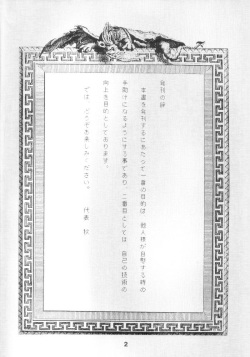 発刊の辞
本書を発刊するにあたって一番の目的は、個人様が自慰する時の
手助けになるようにする事であり、二番目としては、自己の技術の
向上を目的としております。
では、どうぞお楽しみください。
代表
2